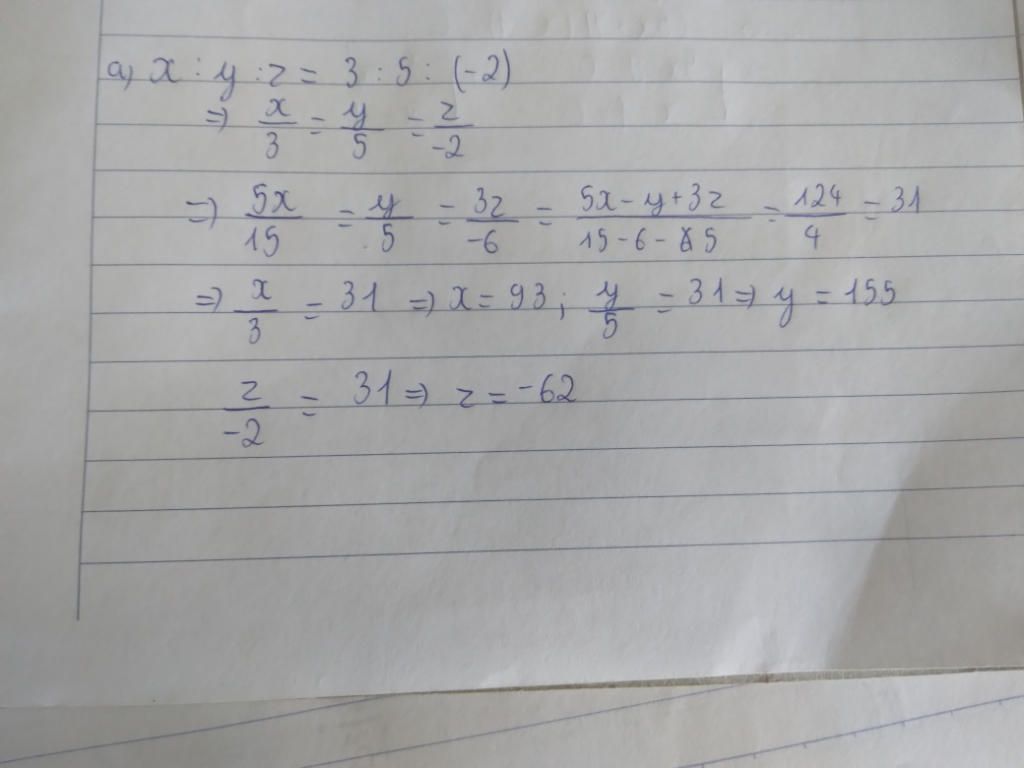 a) x : y : z = 3 : 5 : (-2)
=> x/3 = y/5 = z/-2
=> 5x/15 = y/5 = 3z/-6 = 5x - y + 3z/15 - 6 - 5 = 124/4 = 31
=> x/3 = 31 => x = 93 ; y/5 = 31 => y = 155
z/-2 = 31 => z = -62